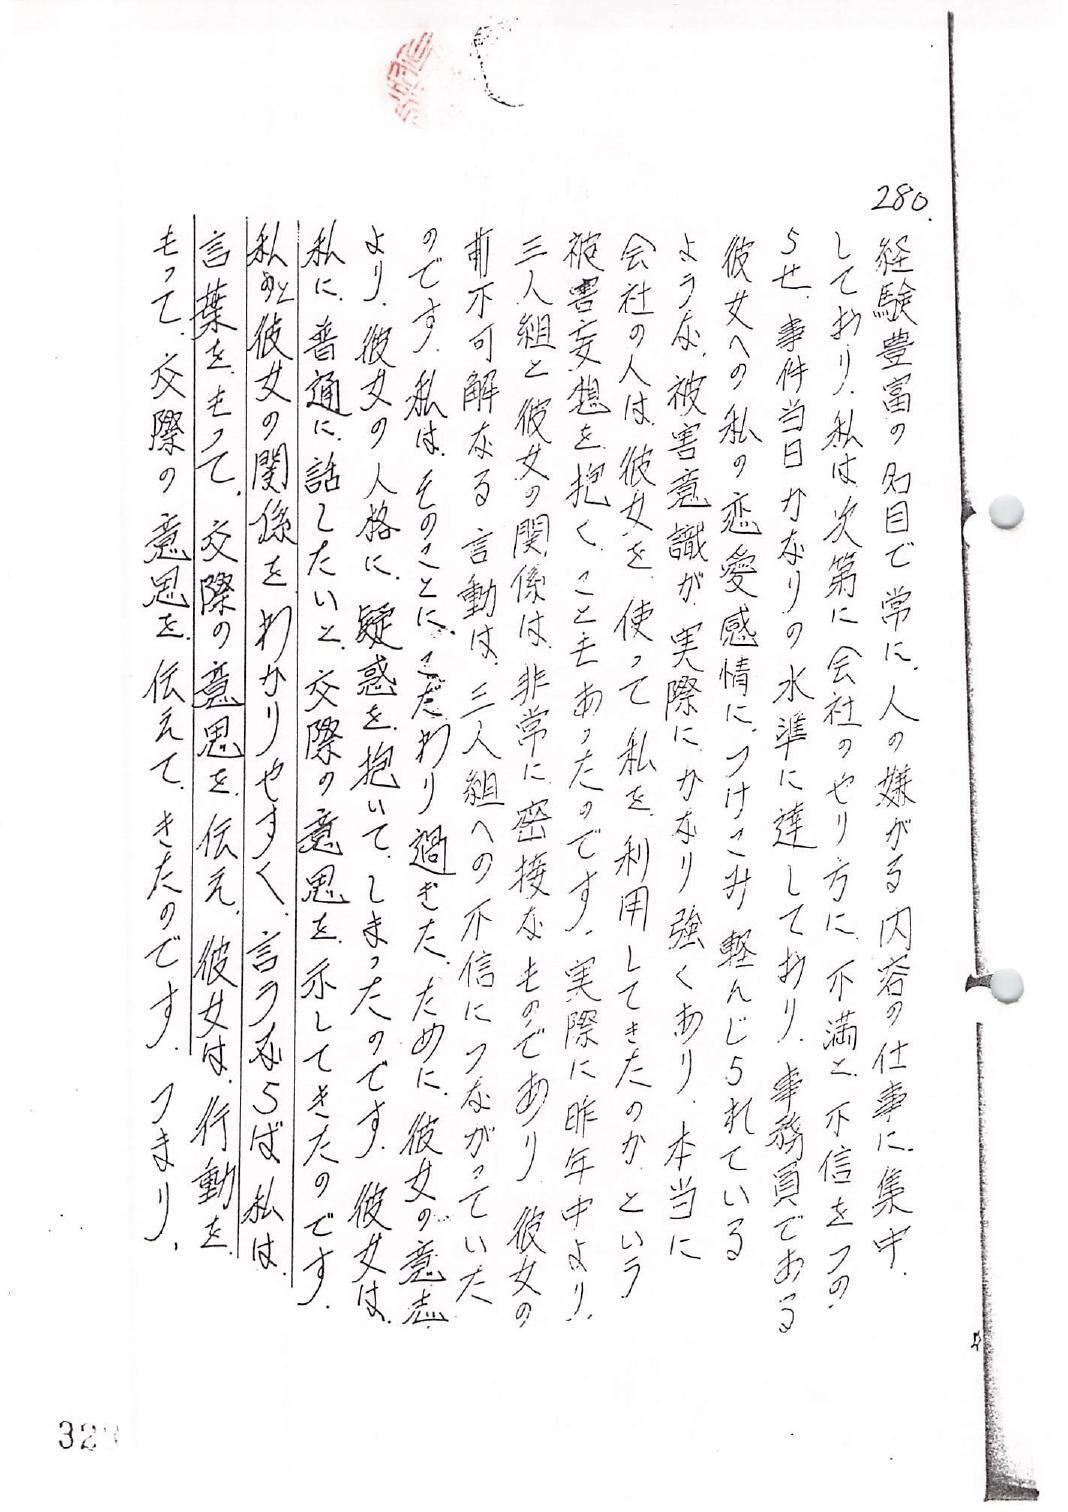 280.
経験豊富の名目で常に、人の嫌がる内容の仕事に集中
しており、私は次第に会社のやり方に、不満と、不信をつの
らせ、事件当日かなりの水準に達しており、事務員である
彼女への私の恋愛感情に、つけこみ軽んじられている
ような、被害意識が、実際にかなり強くあり、本当に
会社の人は、彼女を、使って私を、利用してきたのか、という
被害妄想を、抱く、こともあったのです。実際に昨年中より、
三人組と彼女の関係は、非常に密接なものであり、彼女の
前不可解なる言動は、三人組への不信につながっていた
のです。私は、そのことに、こだわり過ぎた、ために、彼女の意志
より、彼女の人格に、疑惑を、抱いて、しまったのです。彼女は、
私に、普通に、話したいと、交際の意思を、示してきたのです。
私と彼女の関係を、わかりやすく、言うならば、私は、
言葉を、もって、交際の意思を、伝え、彼女は、行動を、
もって、交際の意思を、伝えて、きたのです。つまり、
32